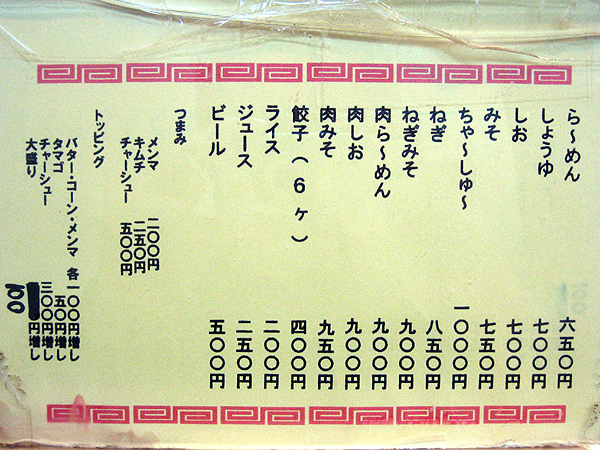 ら〜めん 六五〇円
しょうゆ 七〇〇円
しお 七〇〇円
みそ 七五〇円
ちゃ〜しゅ〜 一〇〇〇円
ねぎ 八五〇円
ねぎみそ 九〇〇円
肉ら〜めん 九〇〇円
肉しお 九〇〇円
肉みそ 九五〇円
餃子(6ヶ) 四〇〇円
ライス 二〇〇円
ジュース 二五〇円
ビール 五〇〇円
つまみ
メンマ 二〇〇円
キムチ 二五〇円
チャーシュー 五〇〇円
トッピング
バター・コーン・メンマ 各一〇〇円増し
タマゴ 五〇円増し
チャーシュー 三〇〇円増し
大盛り 100円増し